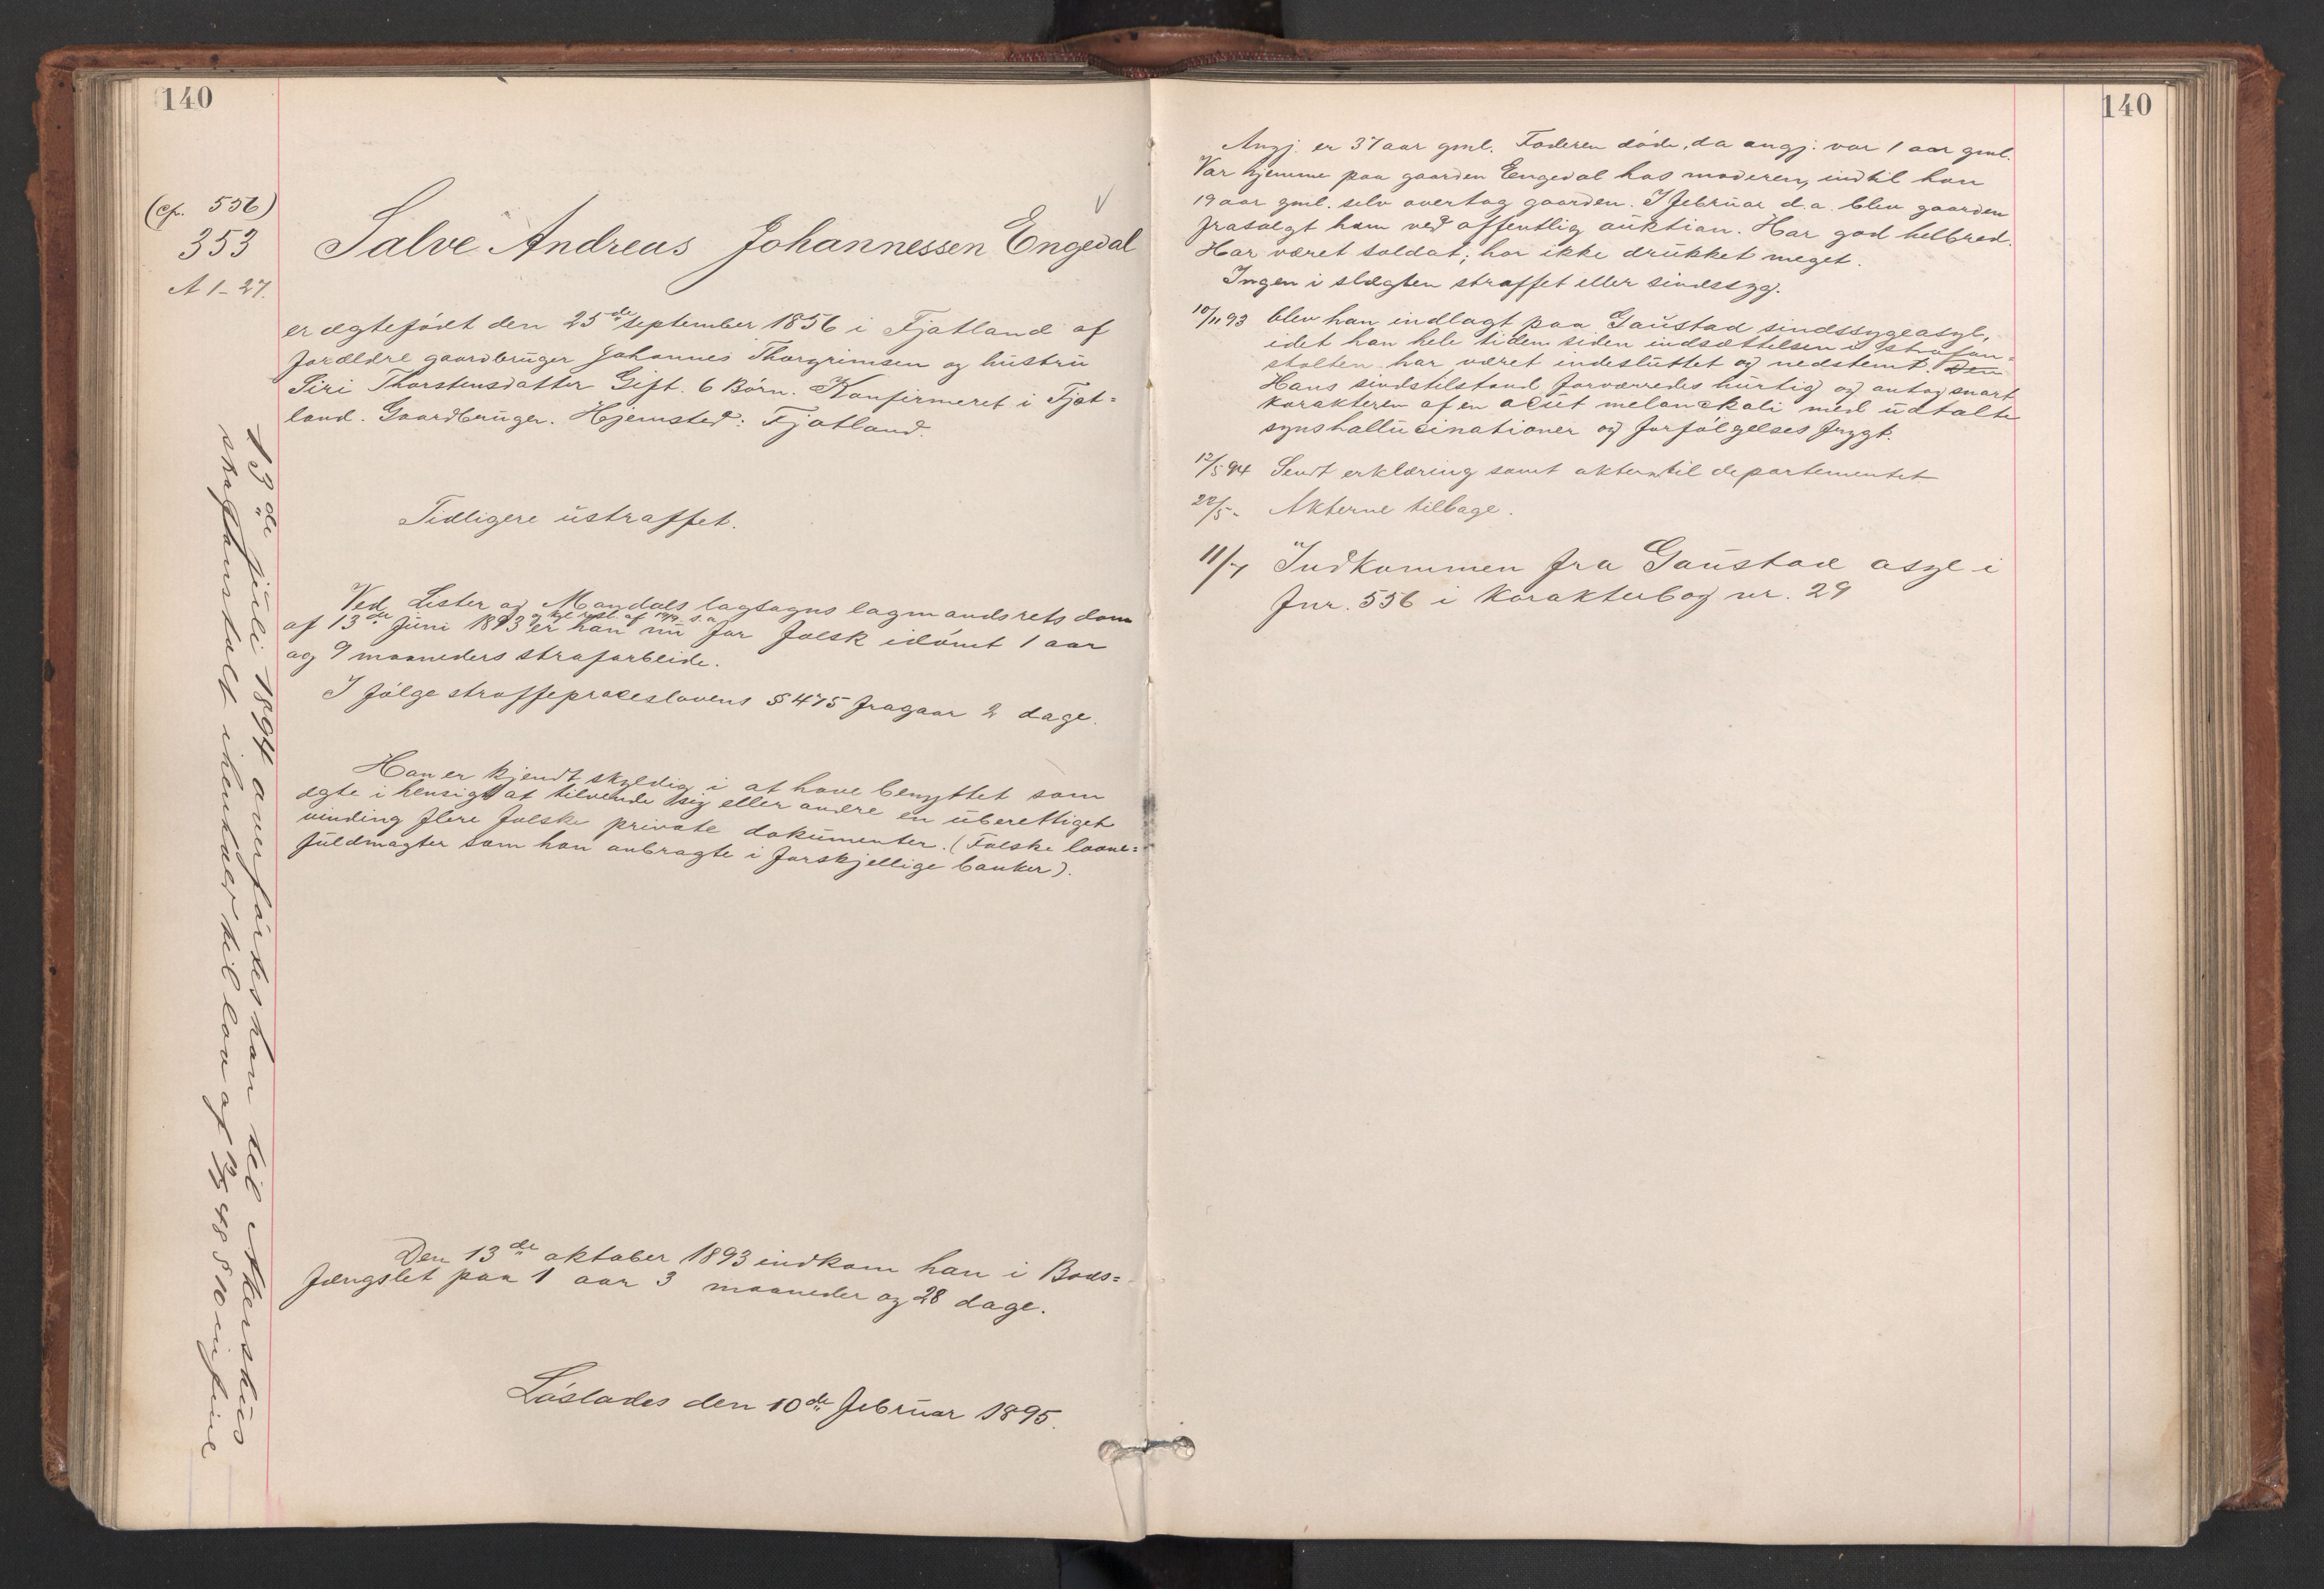 140
(Cfr. 556)
353
A 1-27.
Salve Andreas Johannessen Engedal
er ægtefödt den 25de september 1856 i Fjatland af
forældre gaardbruger Johannes Thorgrimsen og hustru
Siri Thorstensdatter Gift. 6 Börn. Konfirmeret i Fjot=
land. Gaardbruger. Hjemsted: Fjotland.
Tidligere ustraffet.
Ved Lister og Mandals lagsogns lagmandsrets dom
af 13de Juni 1893 er han nu for falsk idömt 1 aar
og 9 maaneders strafarbeide.
I fölge straffeproceslovens § 475 fragaar 2 dage.
Han er kjendt skyldig i at have benyttet som
ægte i hensigt at tilvende sig eller andre en uberettiget
vinding flere falske private dokumenter. (Falske laane=
fuldmagter som han anbragte i forskjellige banker).
Den 13de oktober 1893 indkom han i Bods=
fængslet paa 1 aar 3 maaneder og 28 dage.
Löslades den 10de februar 1895.
13de juli 1894 overförtes han til Akershus
strafanstalt i henhold til lov af 48 § 10 in fine
140
Angj. er 37 aar gml. Faderen döde, da angj. var 1 aar gml.
Var hjemme paa gaarden Engedal hos moderen, indtil han
19 aar gml. selv overtog gaarden. I februar d.a. blev gaarden
frasolgt ham ved offentlig auktion. Har god helbred.
Har været soldat; har ikke drukket meget.
Ingen i slægten straffet eller sindssyg.
10/11 93 blev han indlagt paa Gaustad sindssygeasyl,
idet han hele tiden siden indsættelsen i strafan=
stalten har været indesluttet og nedstemt. Den
Hans sindstilstand forværredes hurtig og antog snart
karakteren af en acut melankoli med udtalte
synshallucinationer og forfölgelses frygt.
12/5 94 Sendt erklæring samt akterne til departementet
22/5 - Akterne tilbage.
11/7 Indkommen fra Gaustad asyl i
fnr. 556 i karakterbog nr. 29